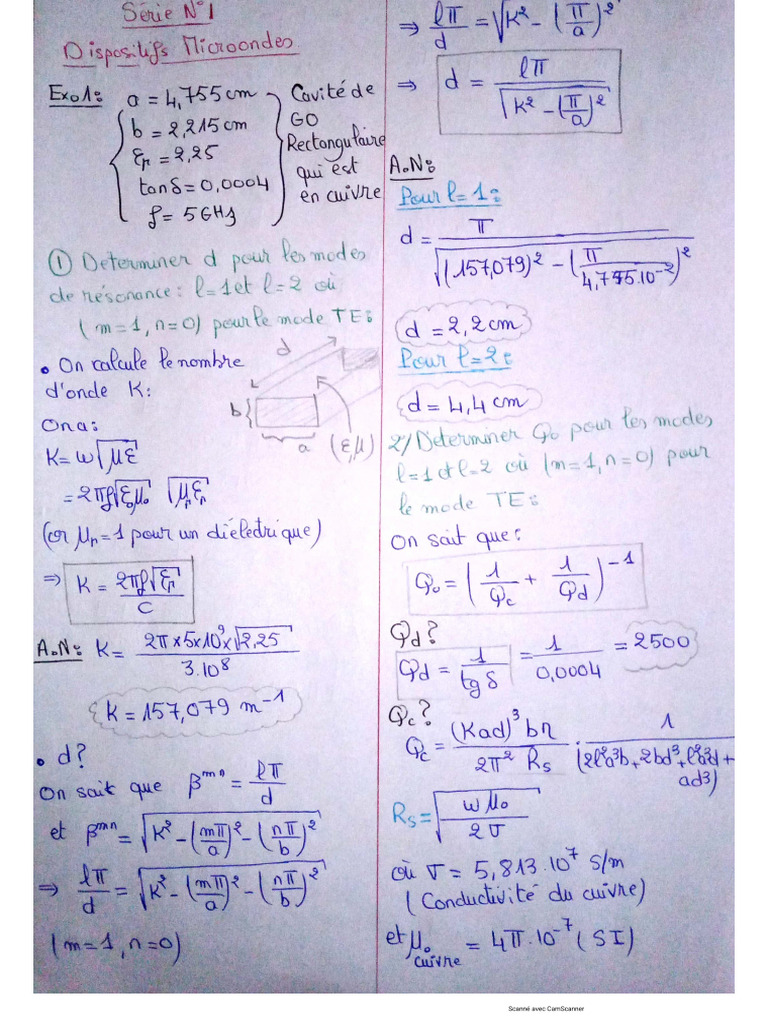 Série N°1
Dispositifs Microondes
Exo1: a = 4,755 cm
b = 2,215 cm
εr = 2,25
tan δ = 0,0004
f = 5 GHz
Cavité de
GO
Rectangulaire
qui est
en cuivre
① Determiner d pour les modes
de résonance: l=1 et l=2 où
(m=1, n=0) pour le mode TE:
• On calcule le nombre
d'onde K:
d
b
a
(ε,μ)
On a:
K = ω√με
= 2πf√ε₀μ₀ √μrεr
(or μr = 1 pour un diélectrique)
⇒ K = 2πf√εr / C
A.N: K = 2π×5×10⁹×√2,25 / 3.10⁸
K = 157,079 m⁻¹
• d?
On sait que β^mn = lπ/d
et β^mn = √(K² - (mπ/a)² - (nπ/b)²)
⇒ lπ/d = √(K² - (mπ/a)² - (nπ/b)²)
(m=1, n=0)
⇒ lπ/d = √(K² - (π/a)²)
⇒ d = lπ / √(K² - (π/a)²)
A.N:
Pour l=1:
d = π / √((157,079)² - (π/4,755.10⁻²)²)
d = 2,2 cm
Pour l=2:
d = 4,4 cm
2°/ Determiner Q₀ pour les modes
l=1 et l=2 où (m=1, n=0) pour
le mode TE:
On sait que:
Q₀ = (1/Qc + 1/Qd)⁻¹
Qd?
Qd = 1/tg δ = 1/0,0004 = 2500
Qc?
Qc = (Kad)³ bη / 2π² Rs · 1 / (2l²a³b + 2bd³ + l²a³d +
ad³)
Rs = √(ωμ₀ / 2σ)
où σ = 5,813.10⁷ S/m
(Conductivité du cuivre)
et μ₀ cuivre = 4π.10⁻⁷ (SI)
Scanné avec CamScanner